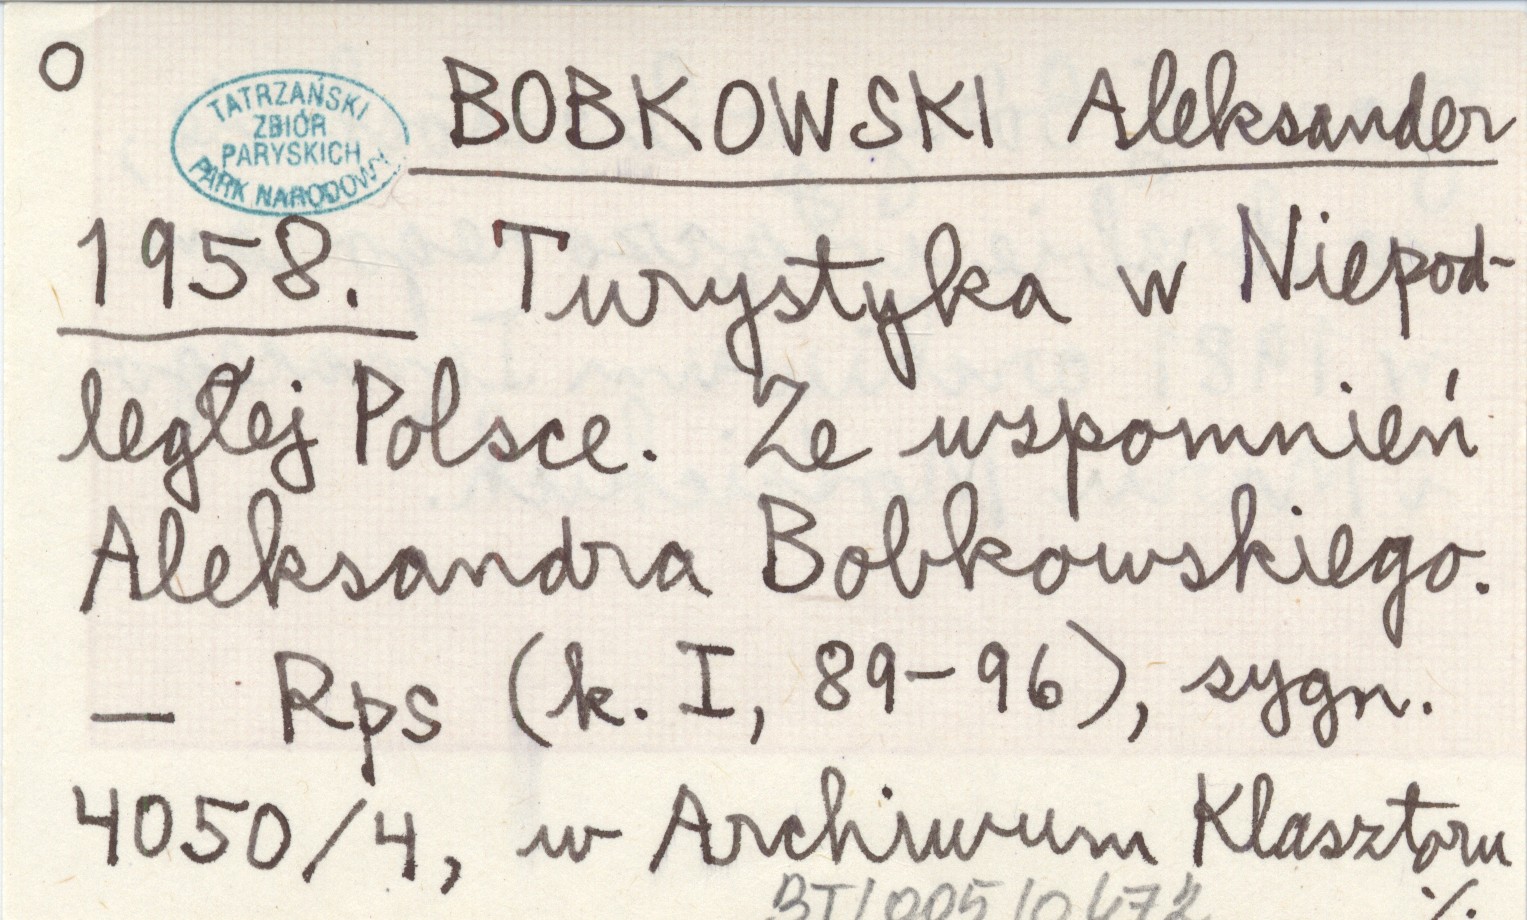 O
TATRZAŃSKI
ZBIÓR
PARYSKICH
PARK NARODOWY
BOBKOWSKI Aleksander
1958. Turystyka w Niepod-
ległej Polsce. Ze wspomnień
Aleksandra Bobkowskiego.
— Rps (k. I, 89-96), sygn.
4050/4, w Archiwum Klasztoru
BT/005/0472
./.